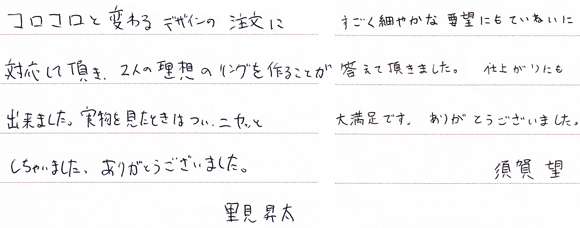 コロコロと変わるデザインの注文に
対応して頂き、2人の理想のリングを作ることが
出来ました。実物を見たときはつい、ニヤッと
しちゃいました、ありがとうございました。
里見昇太
すごく細やかな要望にもていねいに
答えて頂きました。仕上がりにも
大満足です。ありがとうございました。
須賀望